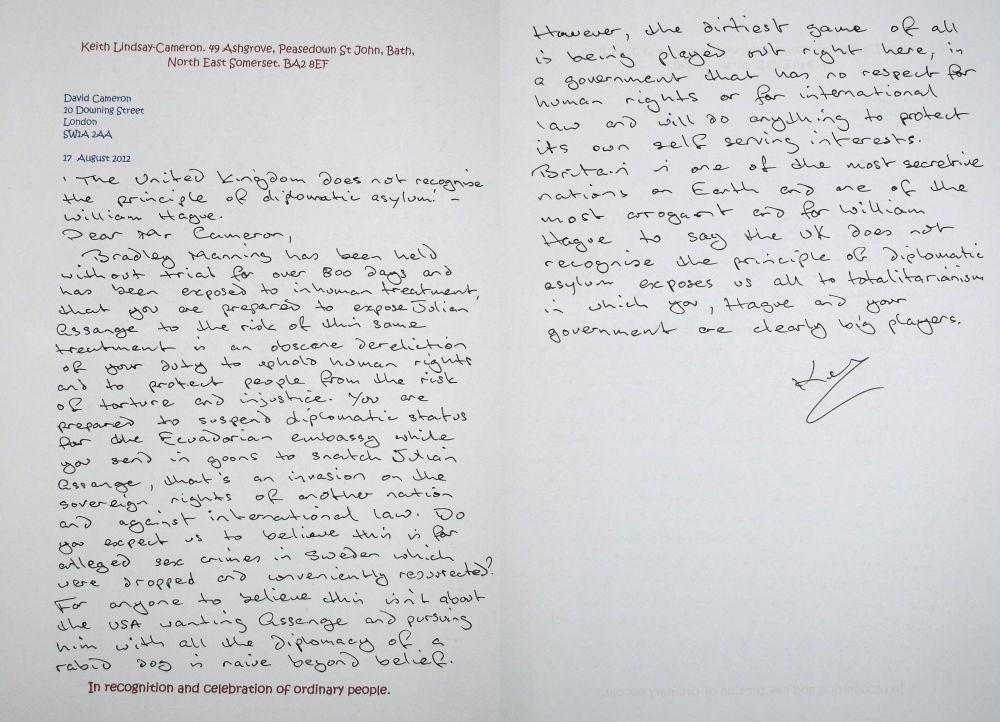 Keith Lindsay-Cameron. 49 Ashgrove, Peasedown St John, Bath,
North East Somerset. BA2 8EF
David Cameron
10 Downing Street
London
SW1A 2AA
17 August 2012
'The United Kingdom does not recognise
the principle of diplomatic asylum' -
William Hague.
Dear Mr Cameron,
Bradley Manning has been held
without trial for over 800 days and
has been exposed to inhuman treatment,
that you are prepared to expose Julian
Assange to the risk of this same
treatment is an obscene dereliction
of your duty to uphold human rights
and to protect people from the risk
of torture and injustice. You are
prepared to suspend diplomatic status
for the Ecuadorian embassy while
you send in goons to snatch Julian
Assange, that's an invasion on the
sovereign rights of another nation
and against international law. Do
you expect us to believe this is for
alleged sex crimes in Sweden which
were dropped and conveniently resurrected?
For anyone to believe this isn't about
the USA wanting Assange and pursuing
him with all the diplomacy of a
rabid dog is naive beyond belief.
In recognition and celebration of ordinary people.
However, the dirtiest game of all
is being played out right here, in
a government that has no respect for
human rights or for international
law and will do anything to protect
its own self serving interests.
Britain is one of the most secretive
nations on Earth and one of the
most arrogant and for William
Hague to say the UK does not
recognise the principle of diplomatic
asylum exposes us all to totalitarianism
in which you, Hague and your
government are clearly big players.